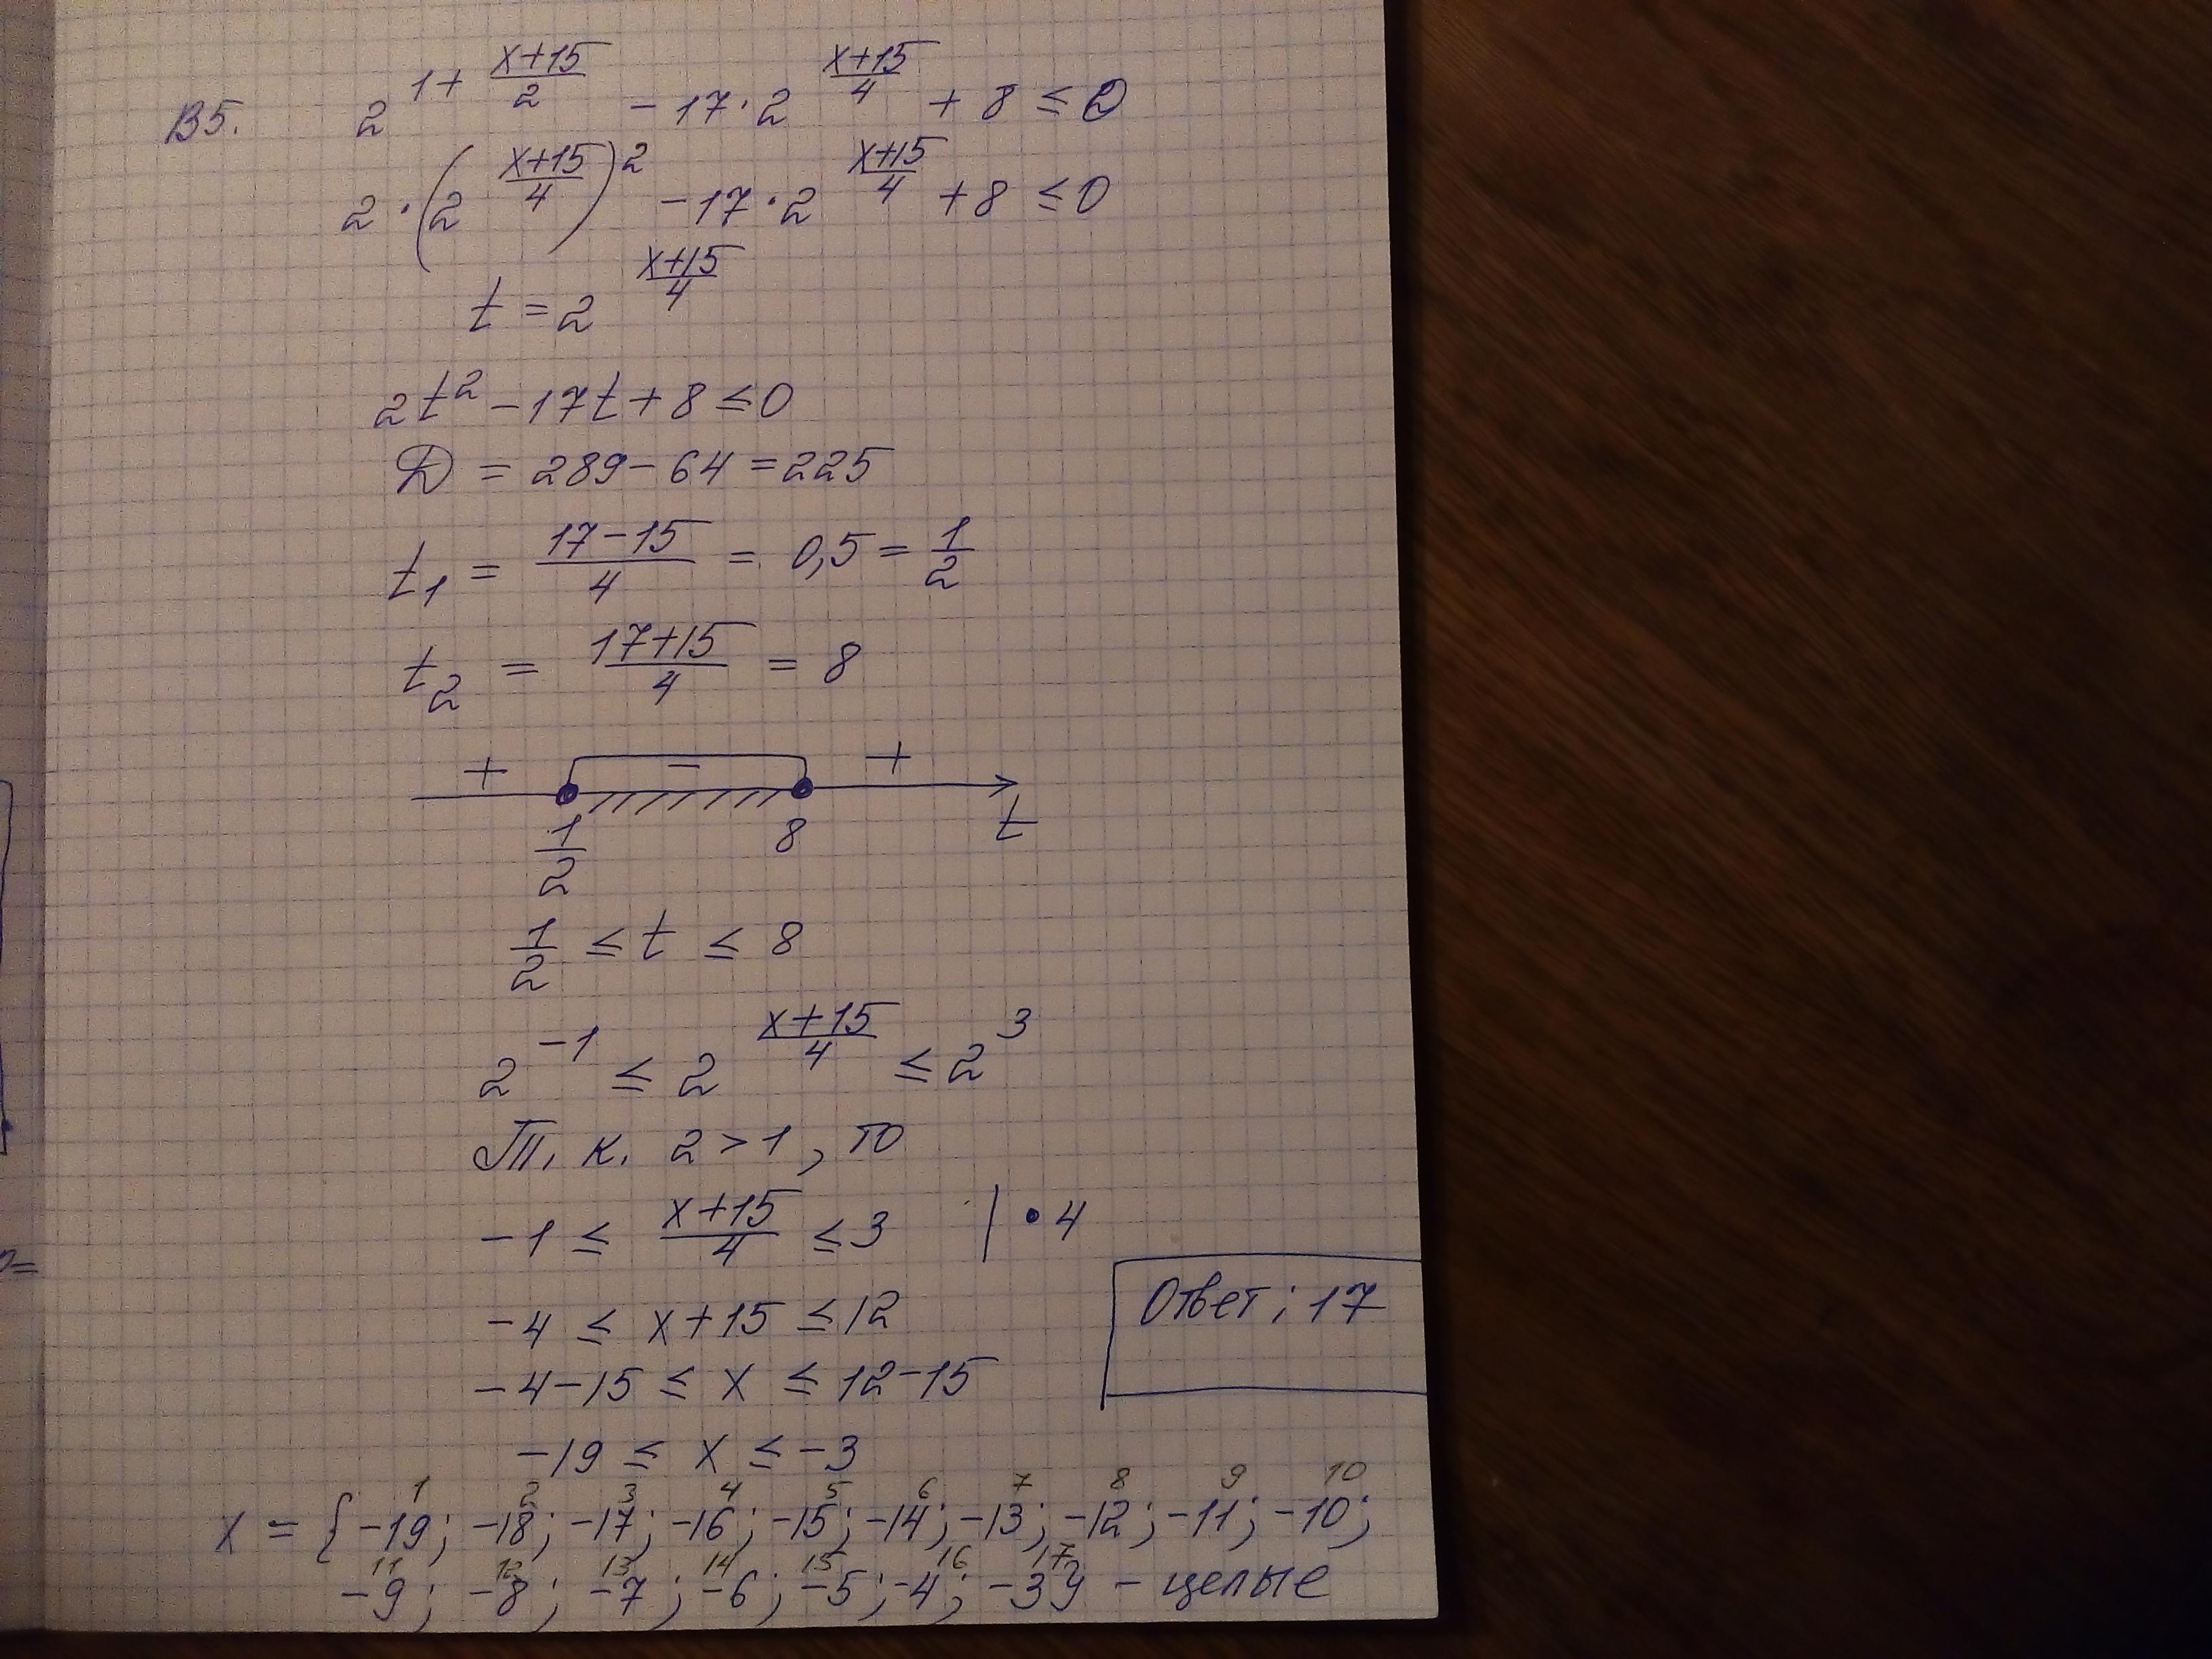 B5. 2^{1+\frac{x+15}{2}} - 17·2^{\frac{x+15}{4}} + 8 ≤ 0
2·(2^{\frac{x+15}{4}})^2 - 17·2^{\frac{x+15}{4}} + 8 ≤ 0
t = 2^{\frac{x+15}{4}}
2t^2 - 17t + 8 ≤ 0
D = 289 - 64 = 225
t_1 = \frac{17-15}{4} = 0,5 = \frac{1}{2}
t_2 = \frac{17+15}{4} = 8
+ - +
\frac{1}{2} 8 t
\frac{1}{2} ≤ t ≤ 8
2^{-1} ≤ 2^{\frac{x+15}{4}} ≤ 2^3
Т. к. 2 > 1, то
-1 ≤ \frac{x+15}{4} ≤ 3 | • 4
-4 ≤ x+15 ≤ 12
Ответ: 17
-4-15 ≤ x ≤ 12-15
-19 ≤ x ≤ -3
1 2 3 4 5 6 7 8 9 10
x = {-19; -18; -17; -16; -15; -14; -13; -12; -11; -10;
11 12 13 14 15 16 17
-9; -8; -7; -6; -5; -4; -3} - целые